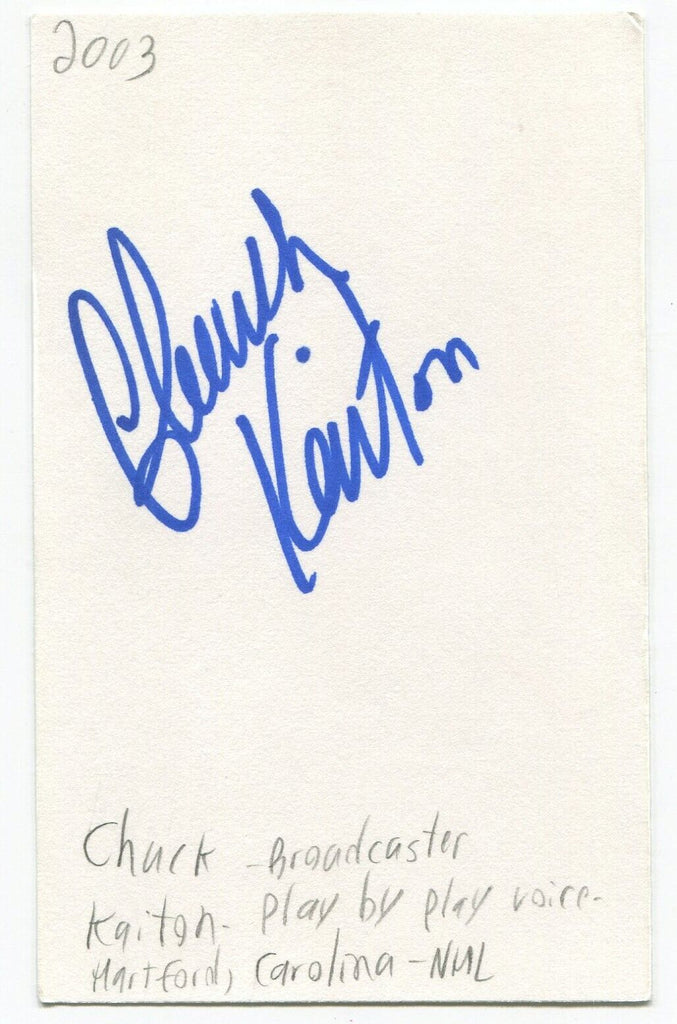 2003
Chuck
Kaiton
Chuck - Broadcaster
Kaiton - Play by play voice -
Hartford, Carolina - NHL